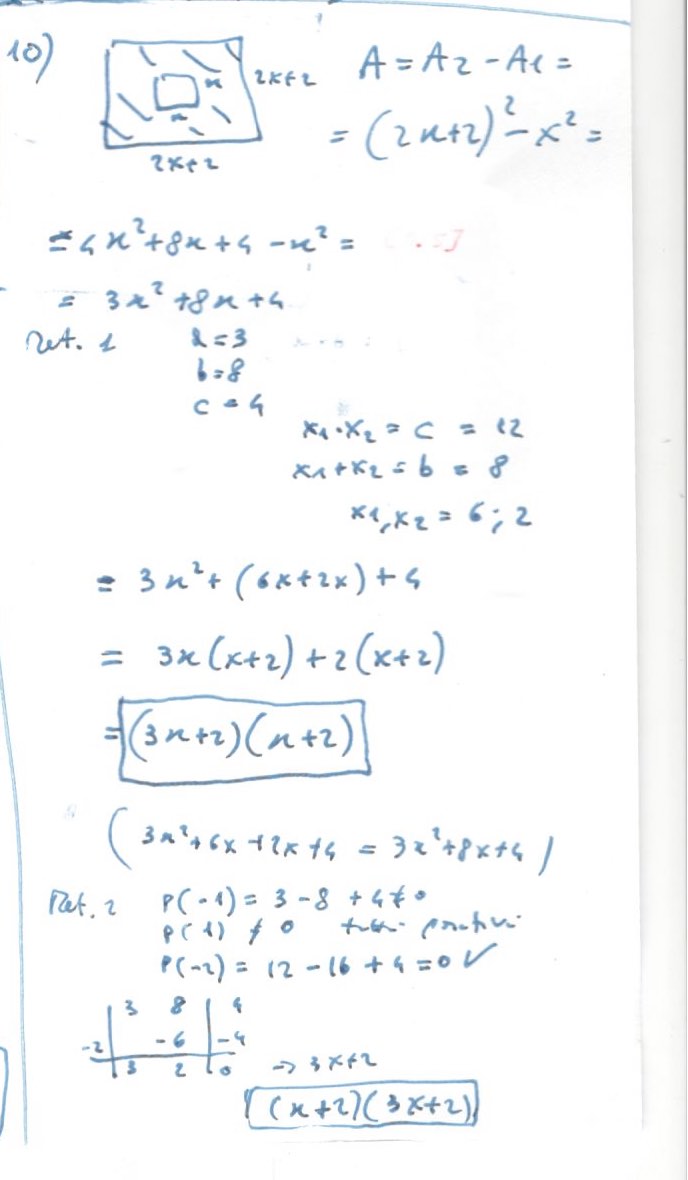 10)
x
x
2x+2
2x+2
A = A2 - A1 =
= (2x+2)² - x² =
= 4x² + 8x + 4 - x² =
= 3x² + 8x + 4
Met. 1
a = 3
b = 8
c = 4
x1 · x2 = c = 12
x1 + x2 = b = 8
x1, x2 = 6 ; 2
= 3x² + (6x + 2x) + 4
= 3x (x+2) + 2 (x+2)
= (3x+2)(x+2)
( 3x² + 6x + 2x + 4 = 3x² + 8x + 4 )
Met. 2 P(-1) = 3 - 8 + 4 ≠ 0
P(1) ≠ 0 tutti positivi
P(-2) = 12 - 16 + 4 = 0 ✓
3 8 4
-2 -6 -4
3 2 0 → 3x+2
(x+2)(3x+2)